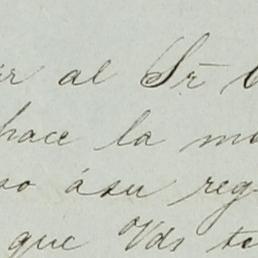 al Sr
hace la
so ásu reg
que Vds te